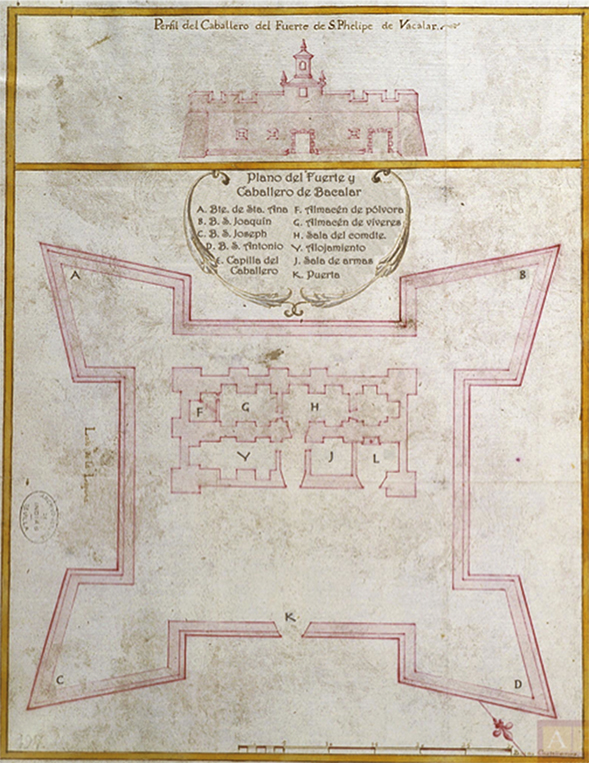 Perfil del Caballero del Fuerte de S. Phelipe de Vacalar.
Plano del Fuerte y
Caballero de Bacalar
A. Bte. de Sta. Ana
B. B. S. Joaquín
C. B. S. Joseph
D. B. S. Antonio
E. Capilla del
Caballero
F. Almacén de pólvora
G. Almacén de víveres
H. Sala del comdte.
Y. Alojamiento
J. Sala de armas
K. Puerta
A
B
F
G
H
Y
J
L
K
C
D
A